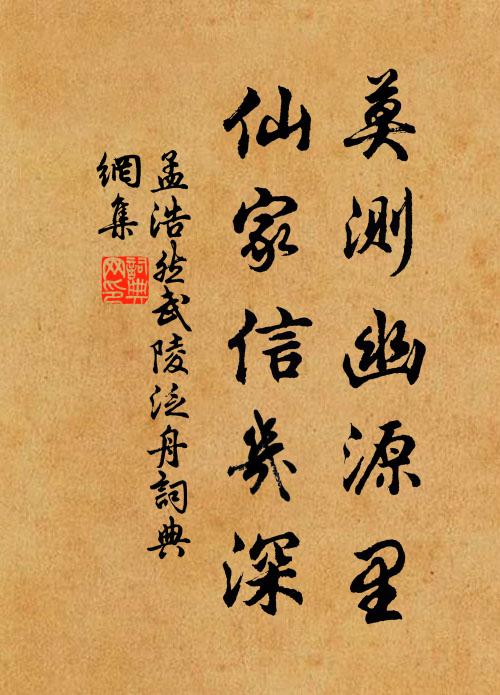 莫测幽源里
仙家信几深
孟浩然武陵泛舟词典
網集
詞典網印